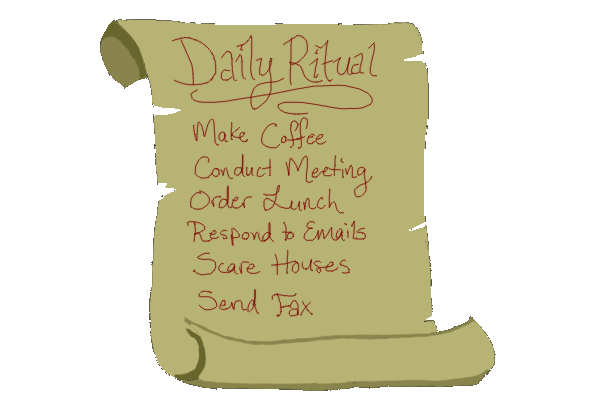 Daily Ritual
Make Coffee
Conduct Meeting
Order Lunch
Respond to Emails
Scare Houses
Send Fax